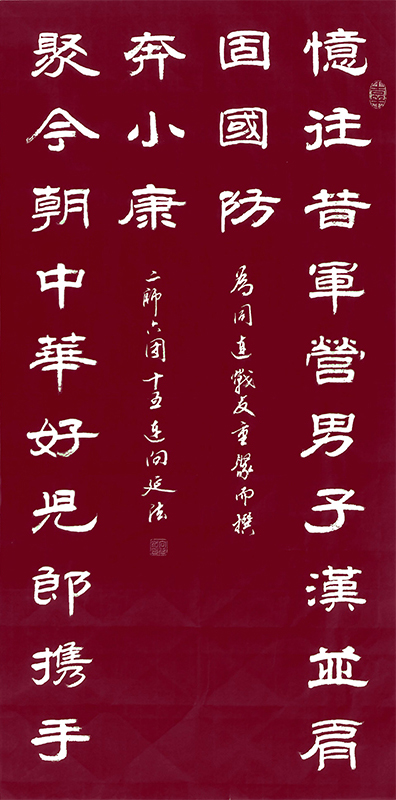 憶往昔軍營男子漢並肩
固國防
聚今朝中華好兒郎携手
奔小康
為同連戰友重聚而撰
二師六团十五連向延法